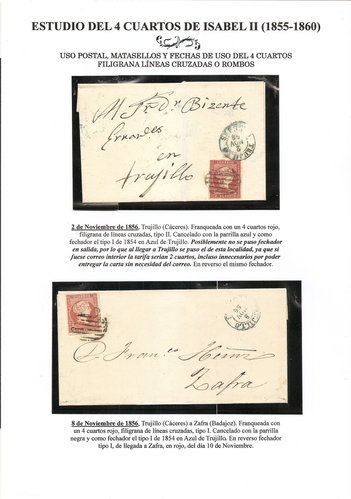 ESTUDIO DEL 4 CUARTOS DE ISABEL II (1855-1860)
USO POSTAL, MATASELLOS Y FECHAS DE USO DEL 4 CUARTOS
FILIGRANA LÍNEAS CRUZADAS O ROMBOS
Bizente
en
trujillo
2 de Noviembre de 1856, Trujillo (Cáceres). Franqueada con un 4 cuartos rojo,
filigrana de líneas cruzadas, tipo II. Cancelado con la parrilla azul y como
fechador el tipo I de 1854 en Azul de Trujillo. Posiblemente no se puso fechador
en salida, por lo que al llegar a Trujillo se puso el de esta localidad, ya que si
fuese correo interior la tarifa serían 2 cuartos, incluso innecesarios por poder
entregar la carta sin necesidad del correo. En reverso el mismo fechador.
Zafra
8 de Noviembre de 1856, Trujillo (Cáceres) a Zafra (Badajoz). Franqueada con
un 4 cuartos rojo, filigrana de líneas cruzadas, tipo I. Cancelado con la parrilla
negra y como fechador el tipo I de 1854 en Azul de Trujillo. En reverso fechador
tipo I, de llegada a Zafra, en rojo, del día 10 de Noviembre.